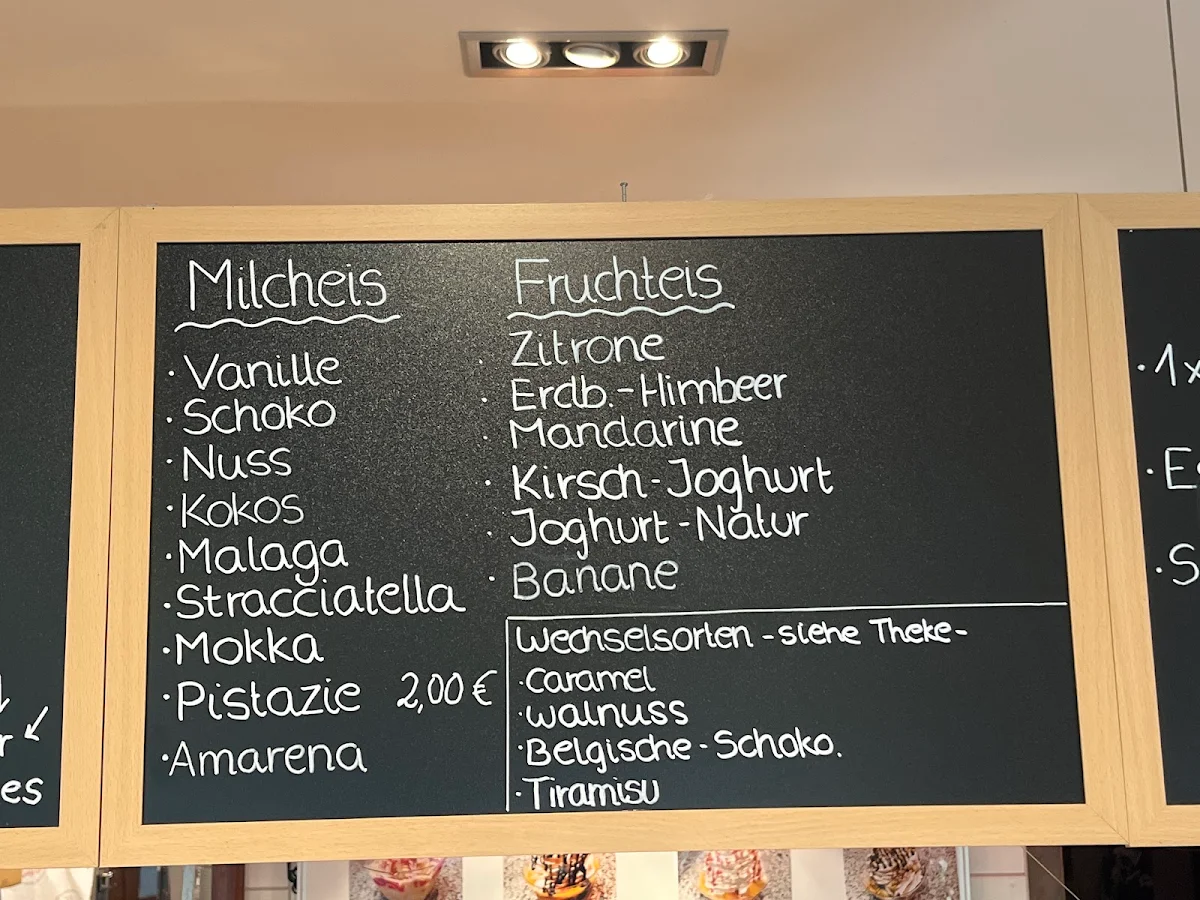 Milcheis
· Vanille
· Schoko
· Nuss
· Kokos
· Malaga
· Stracciatella
· Mokka
· Pistazie 2,00 €
· Amarena
Fruchteis
· Zitrone
· Erdb.-Himbeer
· Mandarine
· Kirsch-Joghurt
· Joghurt-Natur
· Banane
Wechselsorten - siehe Theke -
· Caramel
· Walnuss
· Belgische-Schoko.
· Tiramisu
· 1x